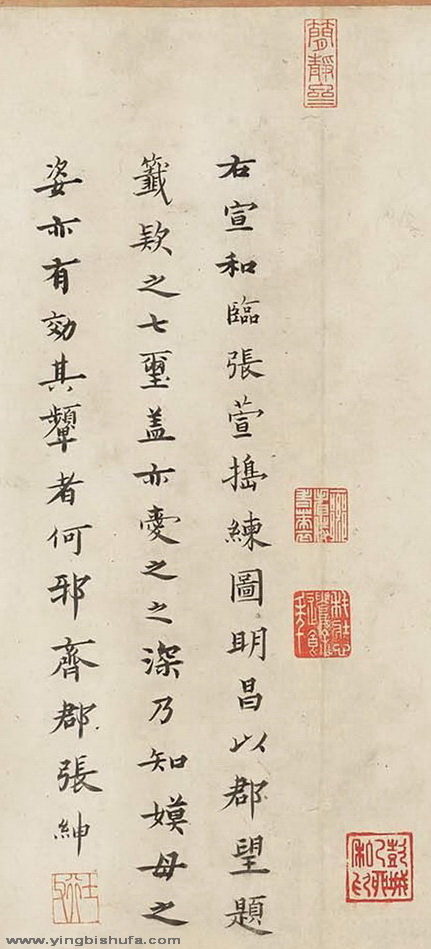 右宣和臨張萱搗練圖明昌以郡望題
籤欵之七璽盖亦愛之之深乃知嫫母之
姿亦有效其顰者何邪齊郡張紳
簡靜齋
www.yingbishufa.com